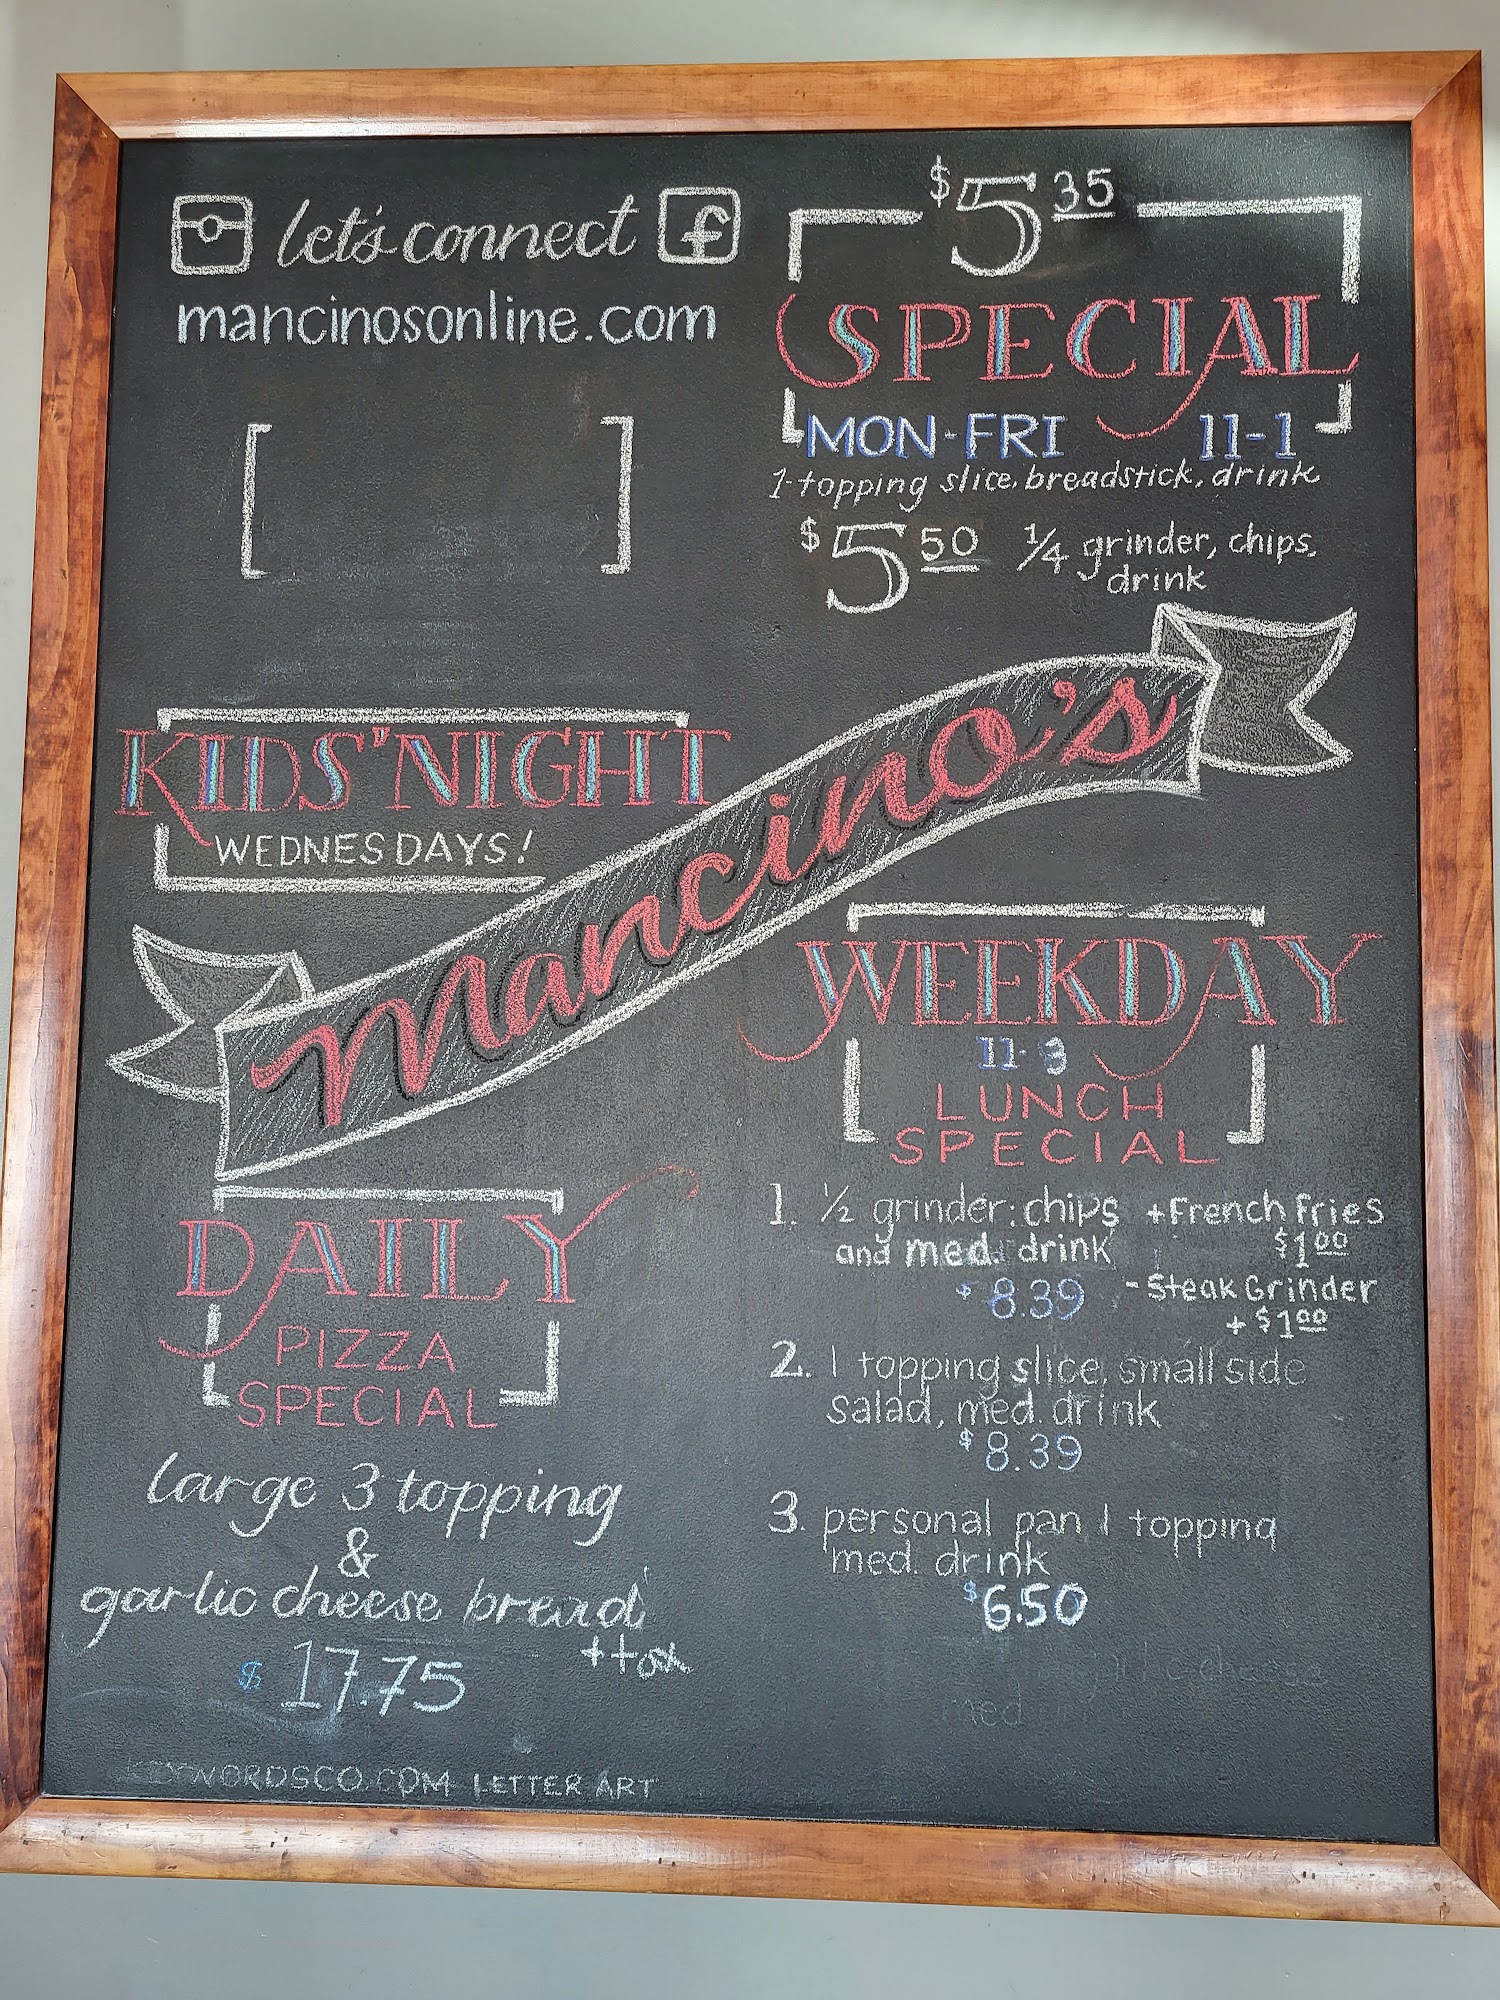 let's connect
mancinosonline.com
$5.35
SPECIAL
MON-FRI 11-1
1-topping slice, breadstick, drink
$5.50 1/4 grinder, chips,
drink
KIDS' NIGHT
WEDNESDAYS!
Mancino's
WEEKDAY
11-3
LUNCH
SPECIAL
1. 1/2 grinder: chips
and med. drink
$8.39
+ French fries
$1.00
- Steak Grinder
+ $1.00
2. 1 topping slice, small side
salad, med. drink
$8.39
3. personal pan 1 topping
med. drink
$6.50
med
DAILY
PIZZA
SPECIAL
large 3 topping
&
garlic cheese bread
+ tax
$17.75
KEYWORDSCO.COM LETTER ART